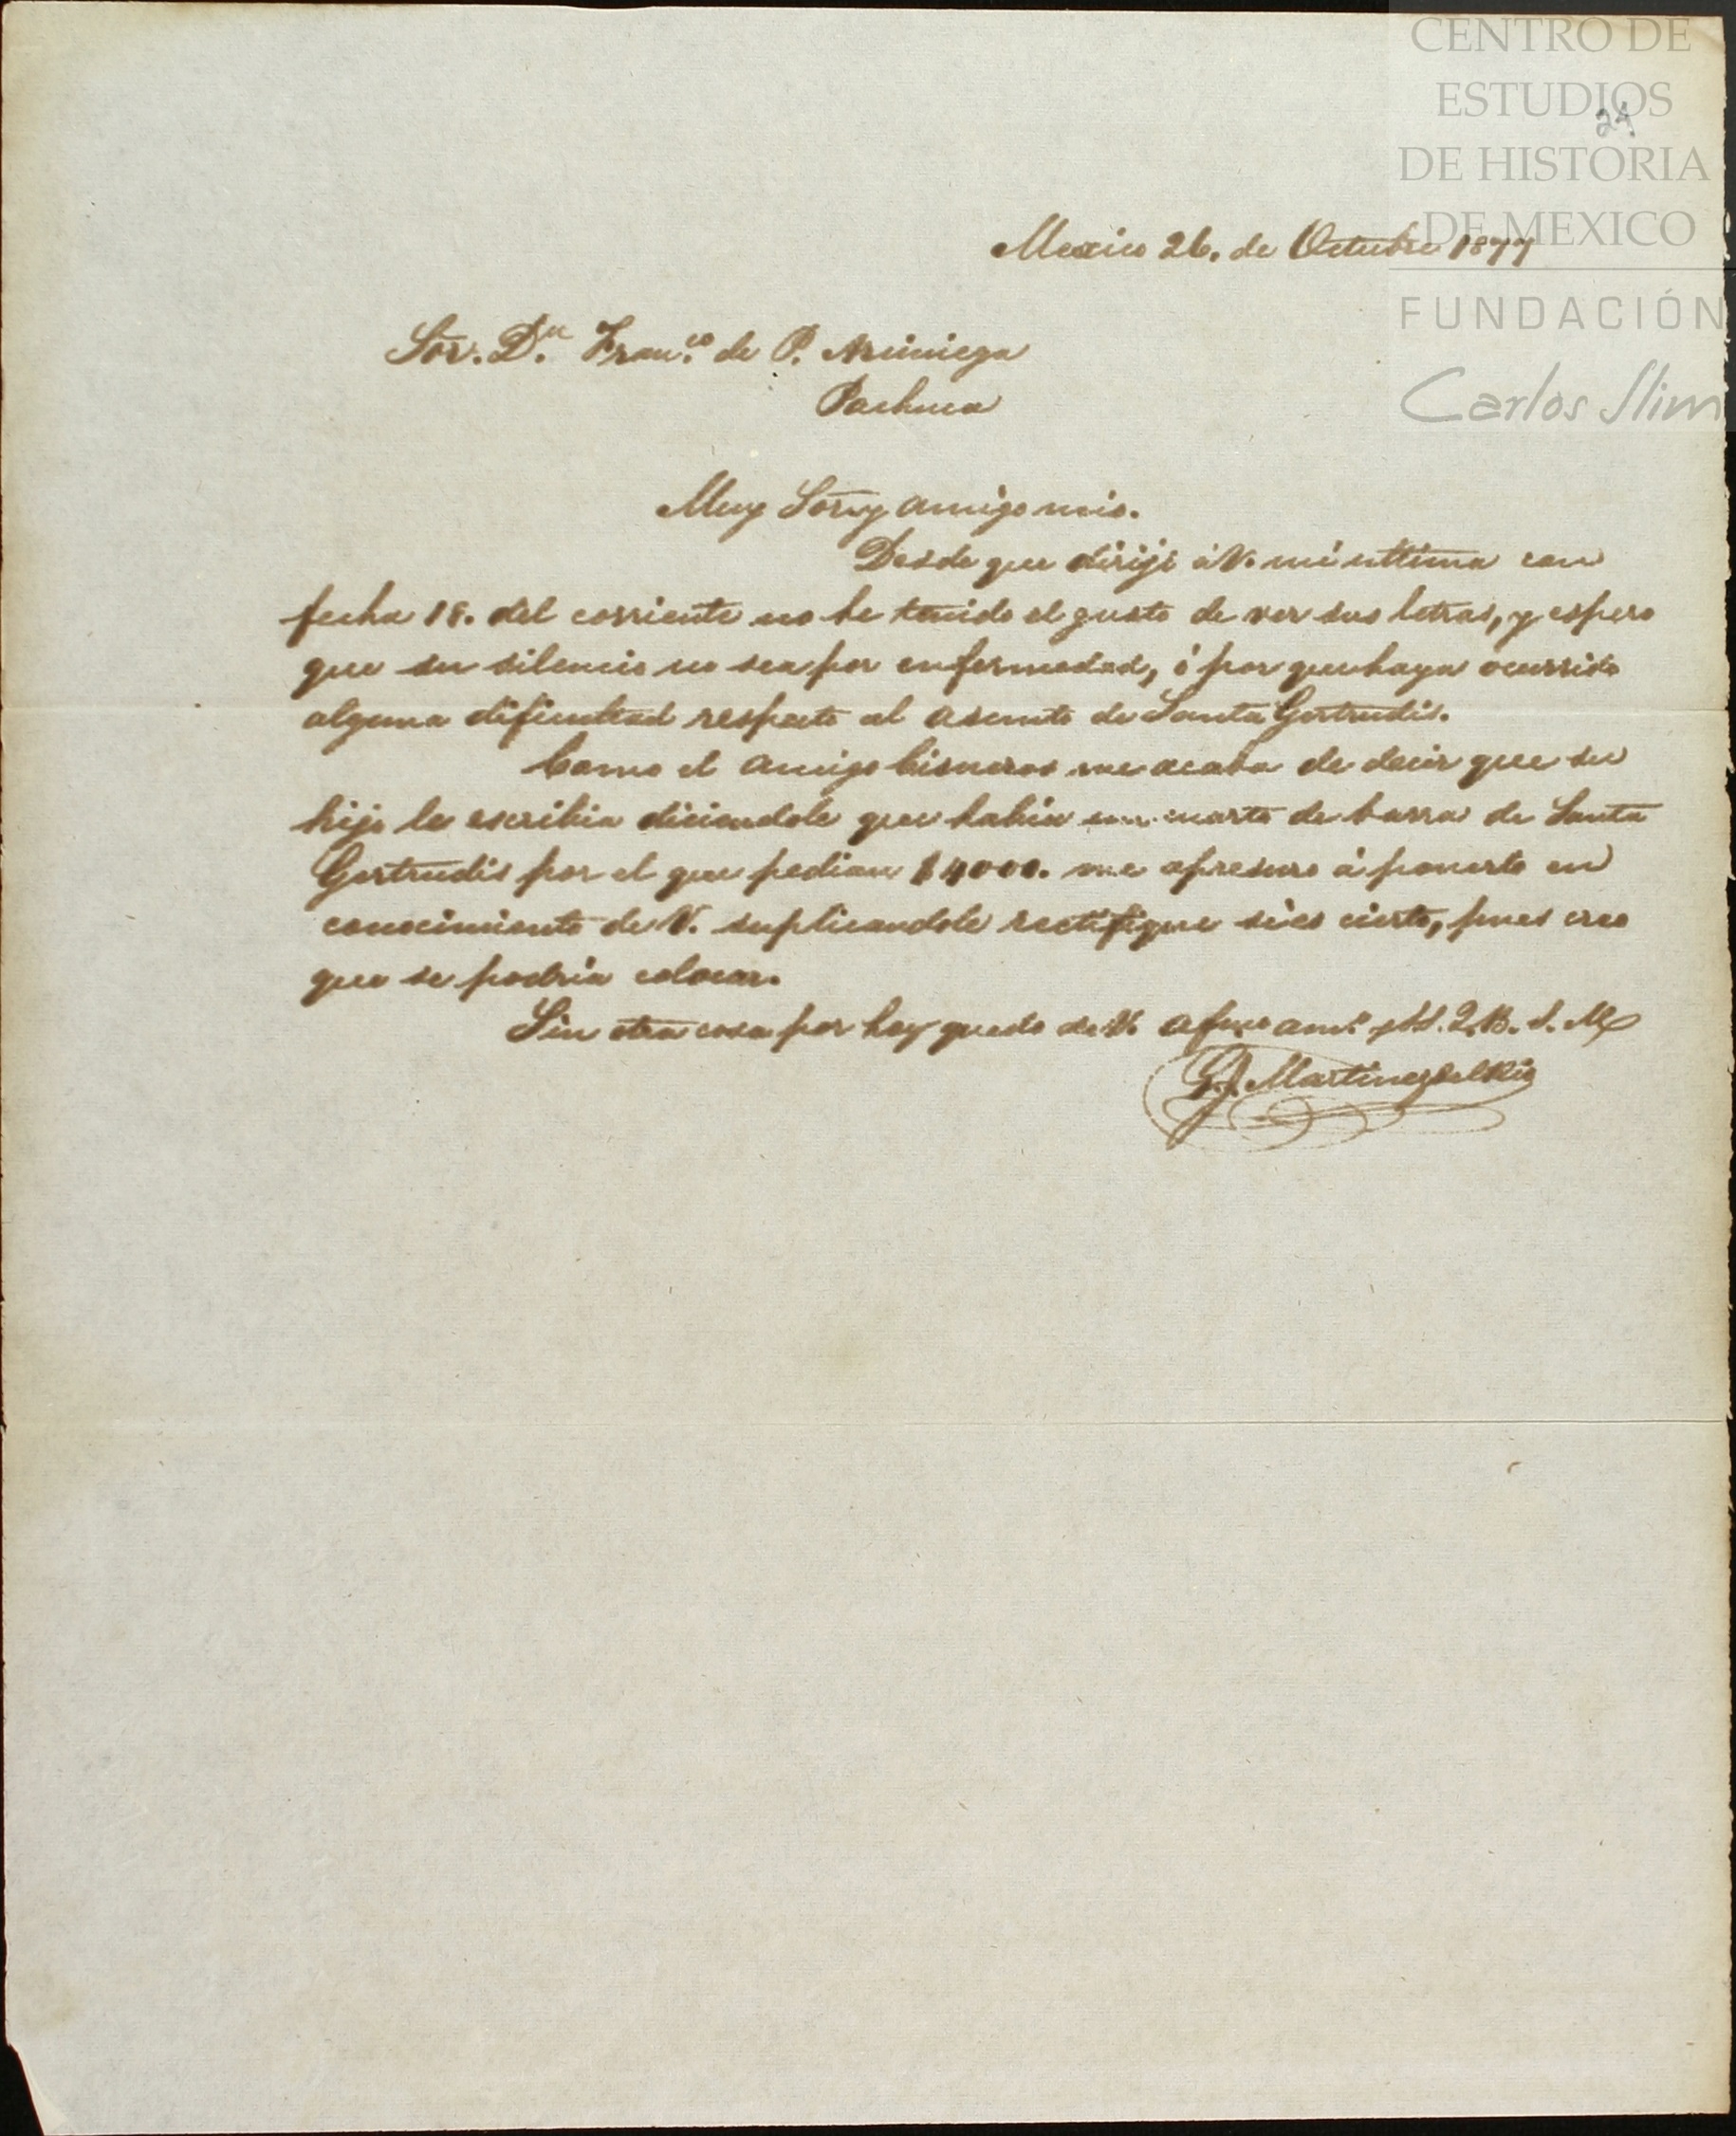 CENTRO DE
ESTUDIOS
24.
DE HISTORIA
DE MEXICO
FUNDACIÓN
Carlos Slim
Mexico 26. de Octubre 1877
Sor. Dn. Franco. de P. Arciniega
Pachuca
Muy Sor. y amigo mio.
Desde que diriji á V. mi ultima con
fecha 18. del corriente no he tenido el gusto de ver sus letras, y espero
que su silencio no sea por enfermedad, ó por que haya ocurrido
alguna dificultad respecto al asunto de Santa Gertrudis.
Como el amigo Cisneros me acaba de decir que su
hijo le escribia diciendole que habia un cuarto de barra de Santa
Gertrudis por el que pedian $4000. me apresuro á ponerlo en
conocimiento de V. suplicandole rectifique si es cierto, pues creo
que se podria colocar.
Sin otra cosa por hoy quedo de V. afmo amo. y S.S. Q.B.S.M.
G. J. Martinez del Rio